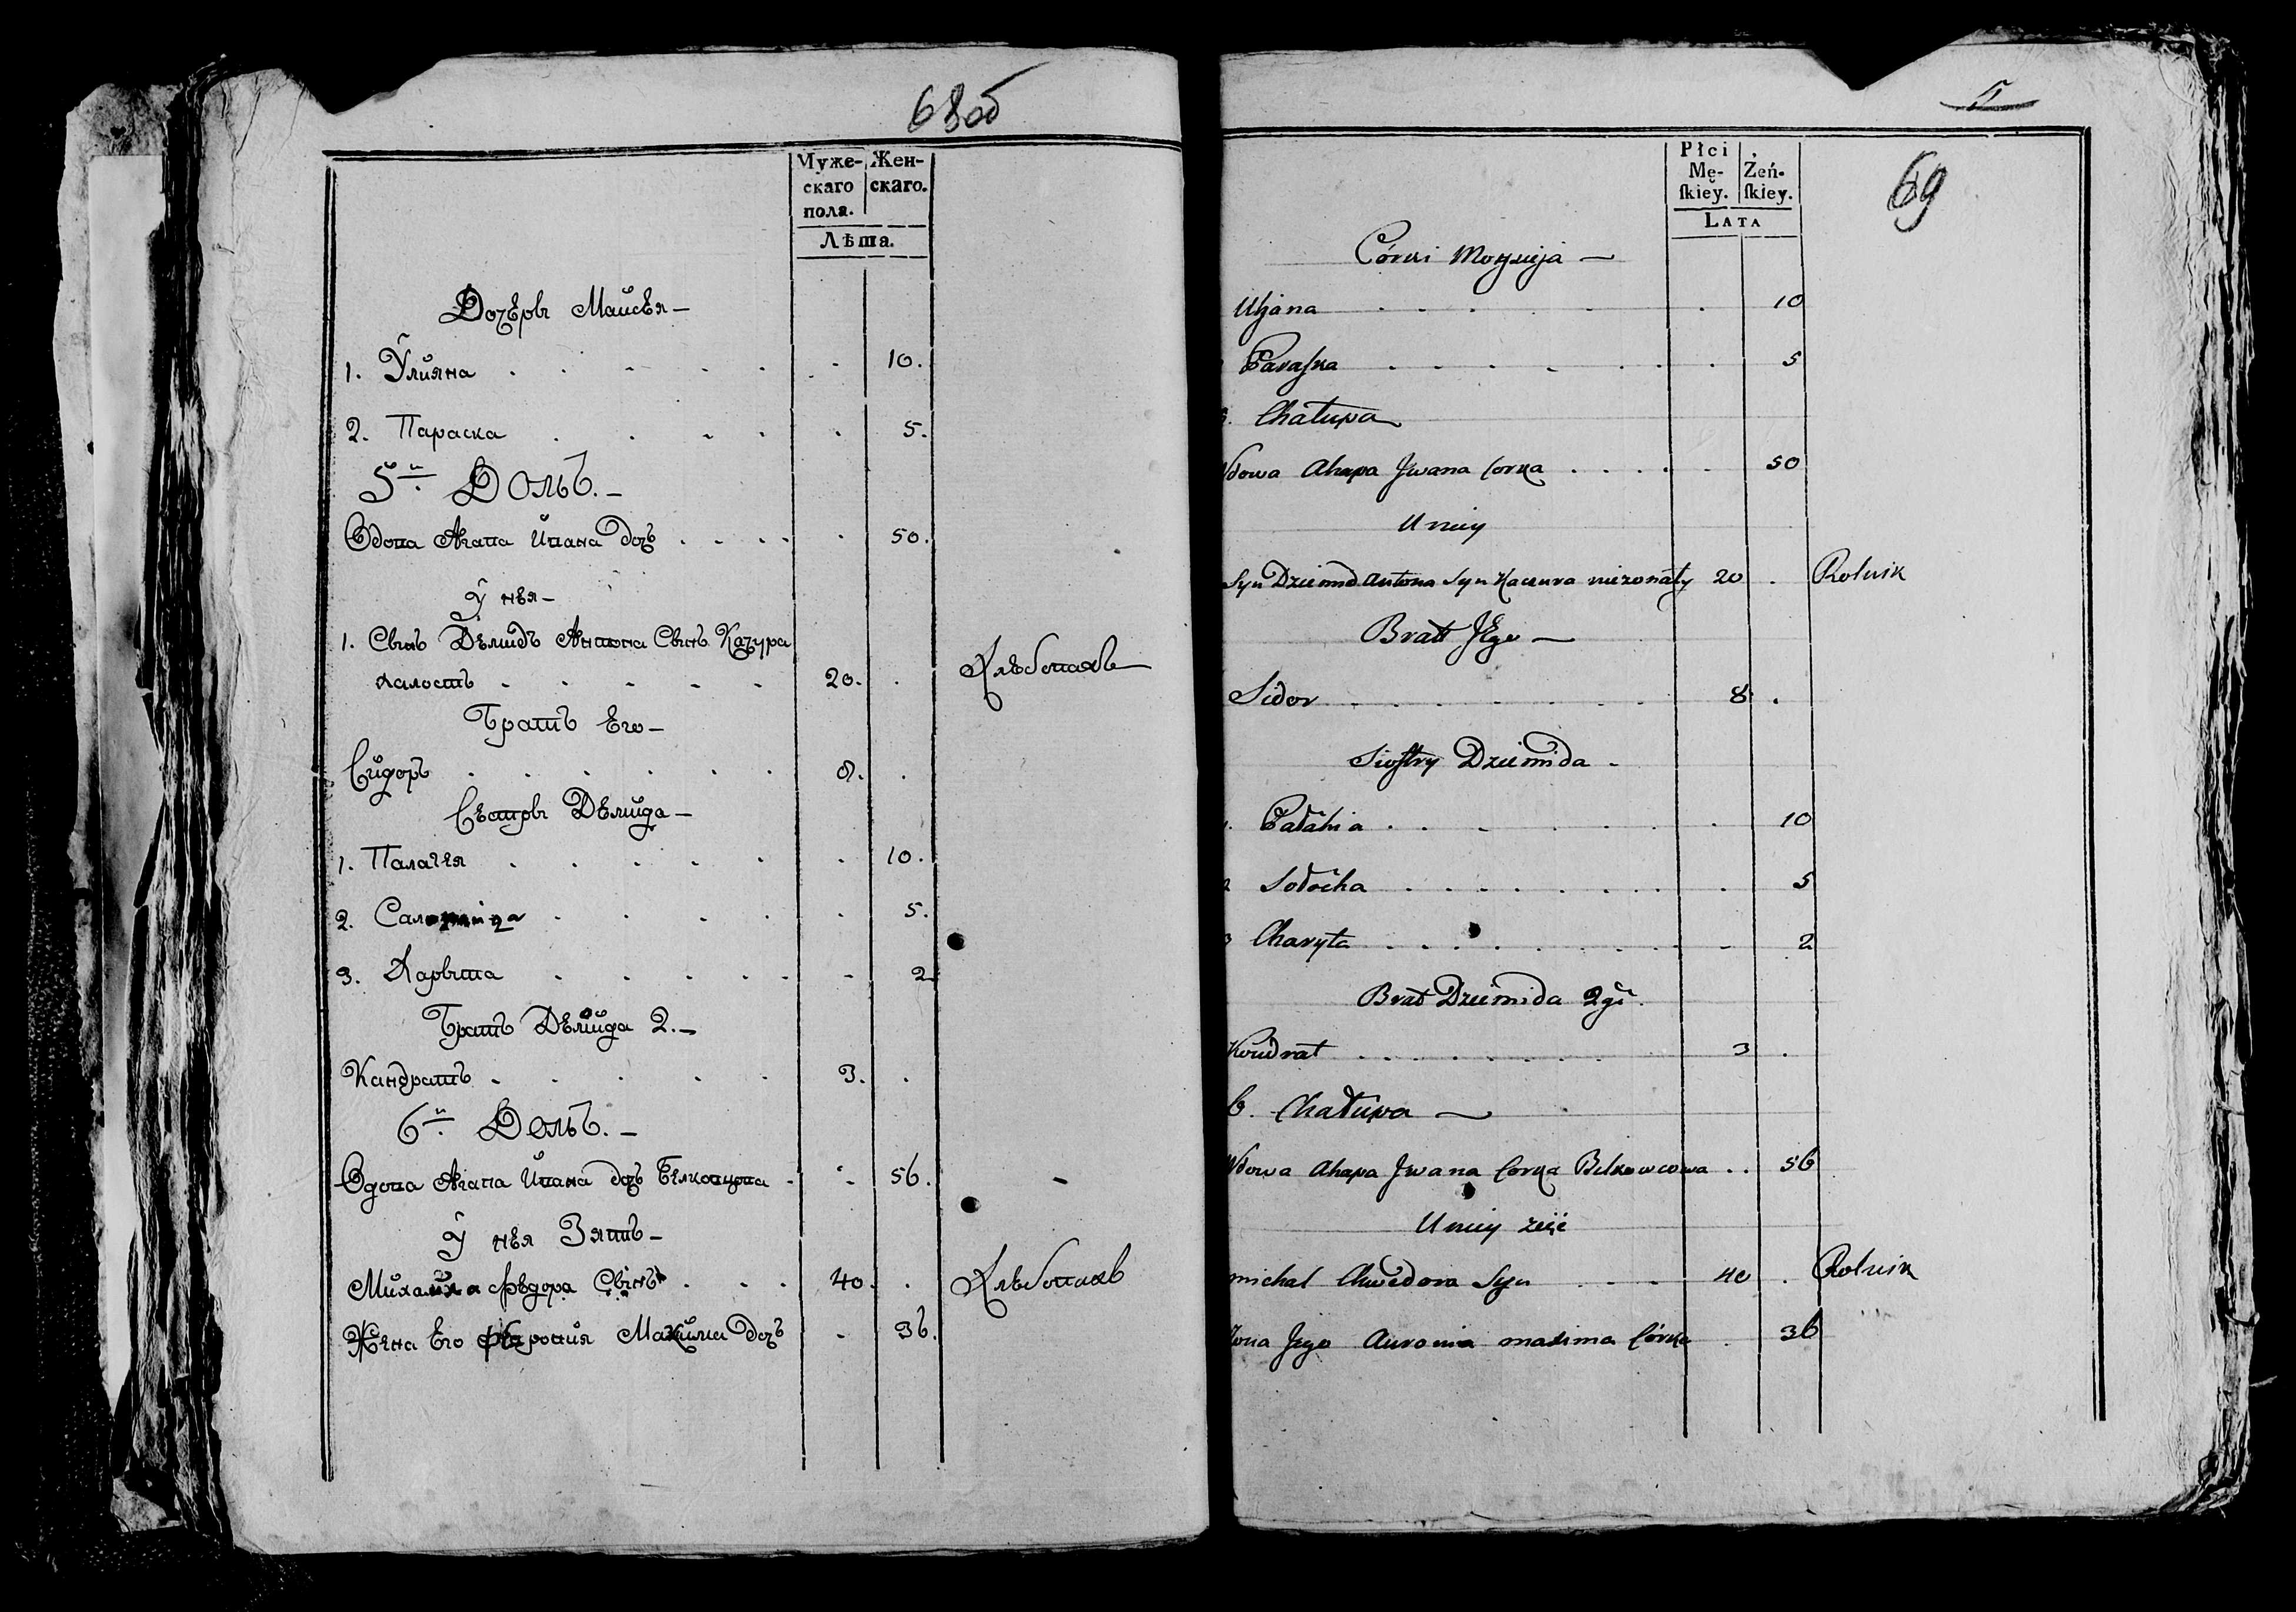 68об
Муже-
скаго
пола.
Жен-
скаго.
Лѣта.
Дочеры Майсея –
1. Улияна 10.
2. Параска 5.
5й. Домъ. –
Вдова Агапа Ивана дочь 50.
У нея –
1. Сынъ Демидъ Антона Сынъ Качура
халостъ 20. Хлебопахъ
Братъ Его –
Сидоръ 8.
Сестры Демида –
1. Палагея 10.
2. 5.
3. Харыта 2
Братъ Демида 2. –
Кандратъ 3.
6й. Домъ. –
Вдова Агапа Ивана дочь Белковцова 56.
У нея Зять –
Федора Сынъ 40. Хлебопахъ
Жена Его Максима дочь 36.
5
69
Płci
Mę-
ſkiey.
Żeń-
ſkiey.
LATA
Córki –
Uljana 10
Paraſka 5
Chałupa
Wdowa Ahapa Jwana Corka 50
U niey
Syn Dziemid Antona Syn Kaczura niezonaty 20 Rolnik
Bratt Jego –
Sidor 8
Sioſtry Dziemida –
Pałahia 10
2 Sołocha 5
3 Charyta 2
Brat Dziemida 2gi
Kondrat 3
6. Chałupa –
Wdowa Ahapa Jwana Corka Belkowcowa 56
U niey zięć
Michał Chwedora Syn 40 Rolnik
Żona Jego Auronia Maxima Córka 36